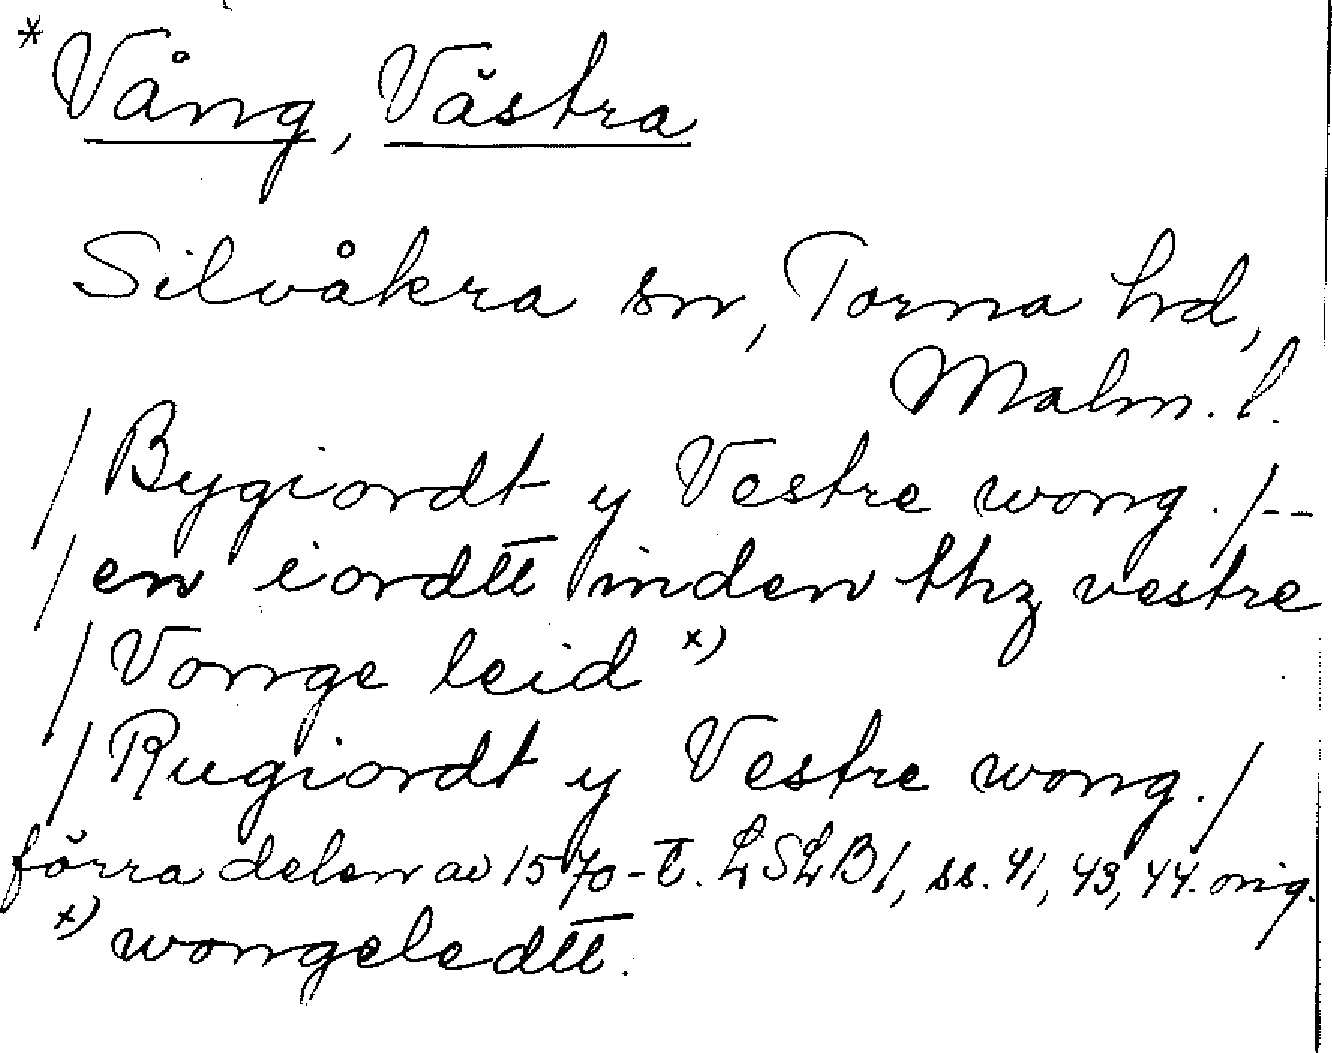 *Vång, Västra
Silvåkra sn, Torna hd,
Malm. l.
/Bygiordt y Vestre wong./--
/en iordtt inden thz vestre
/Vonge leid x)
/Rugiordt y Vestre wong./
förra delen av 1570-t. LSLB1, ss. 41, 43, 44. orig.
x) wongeledtt.